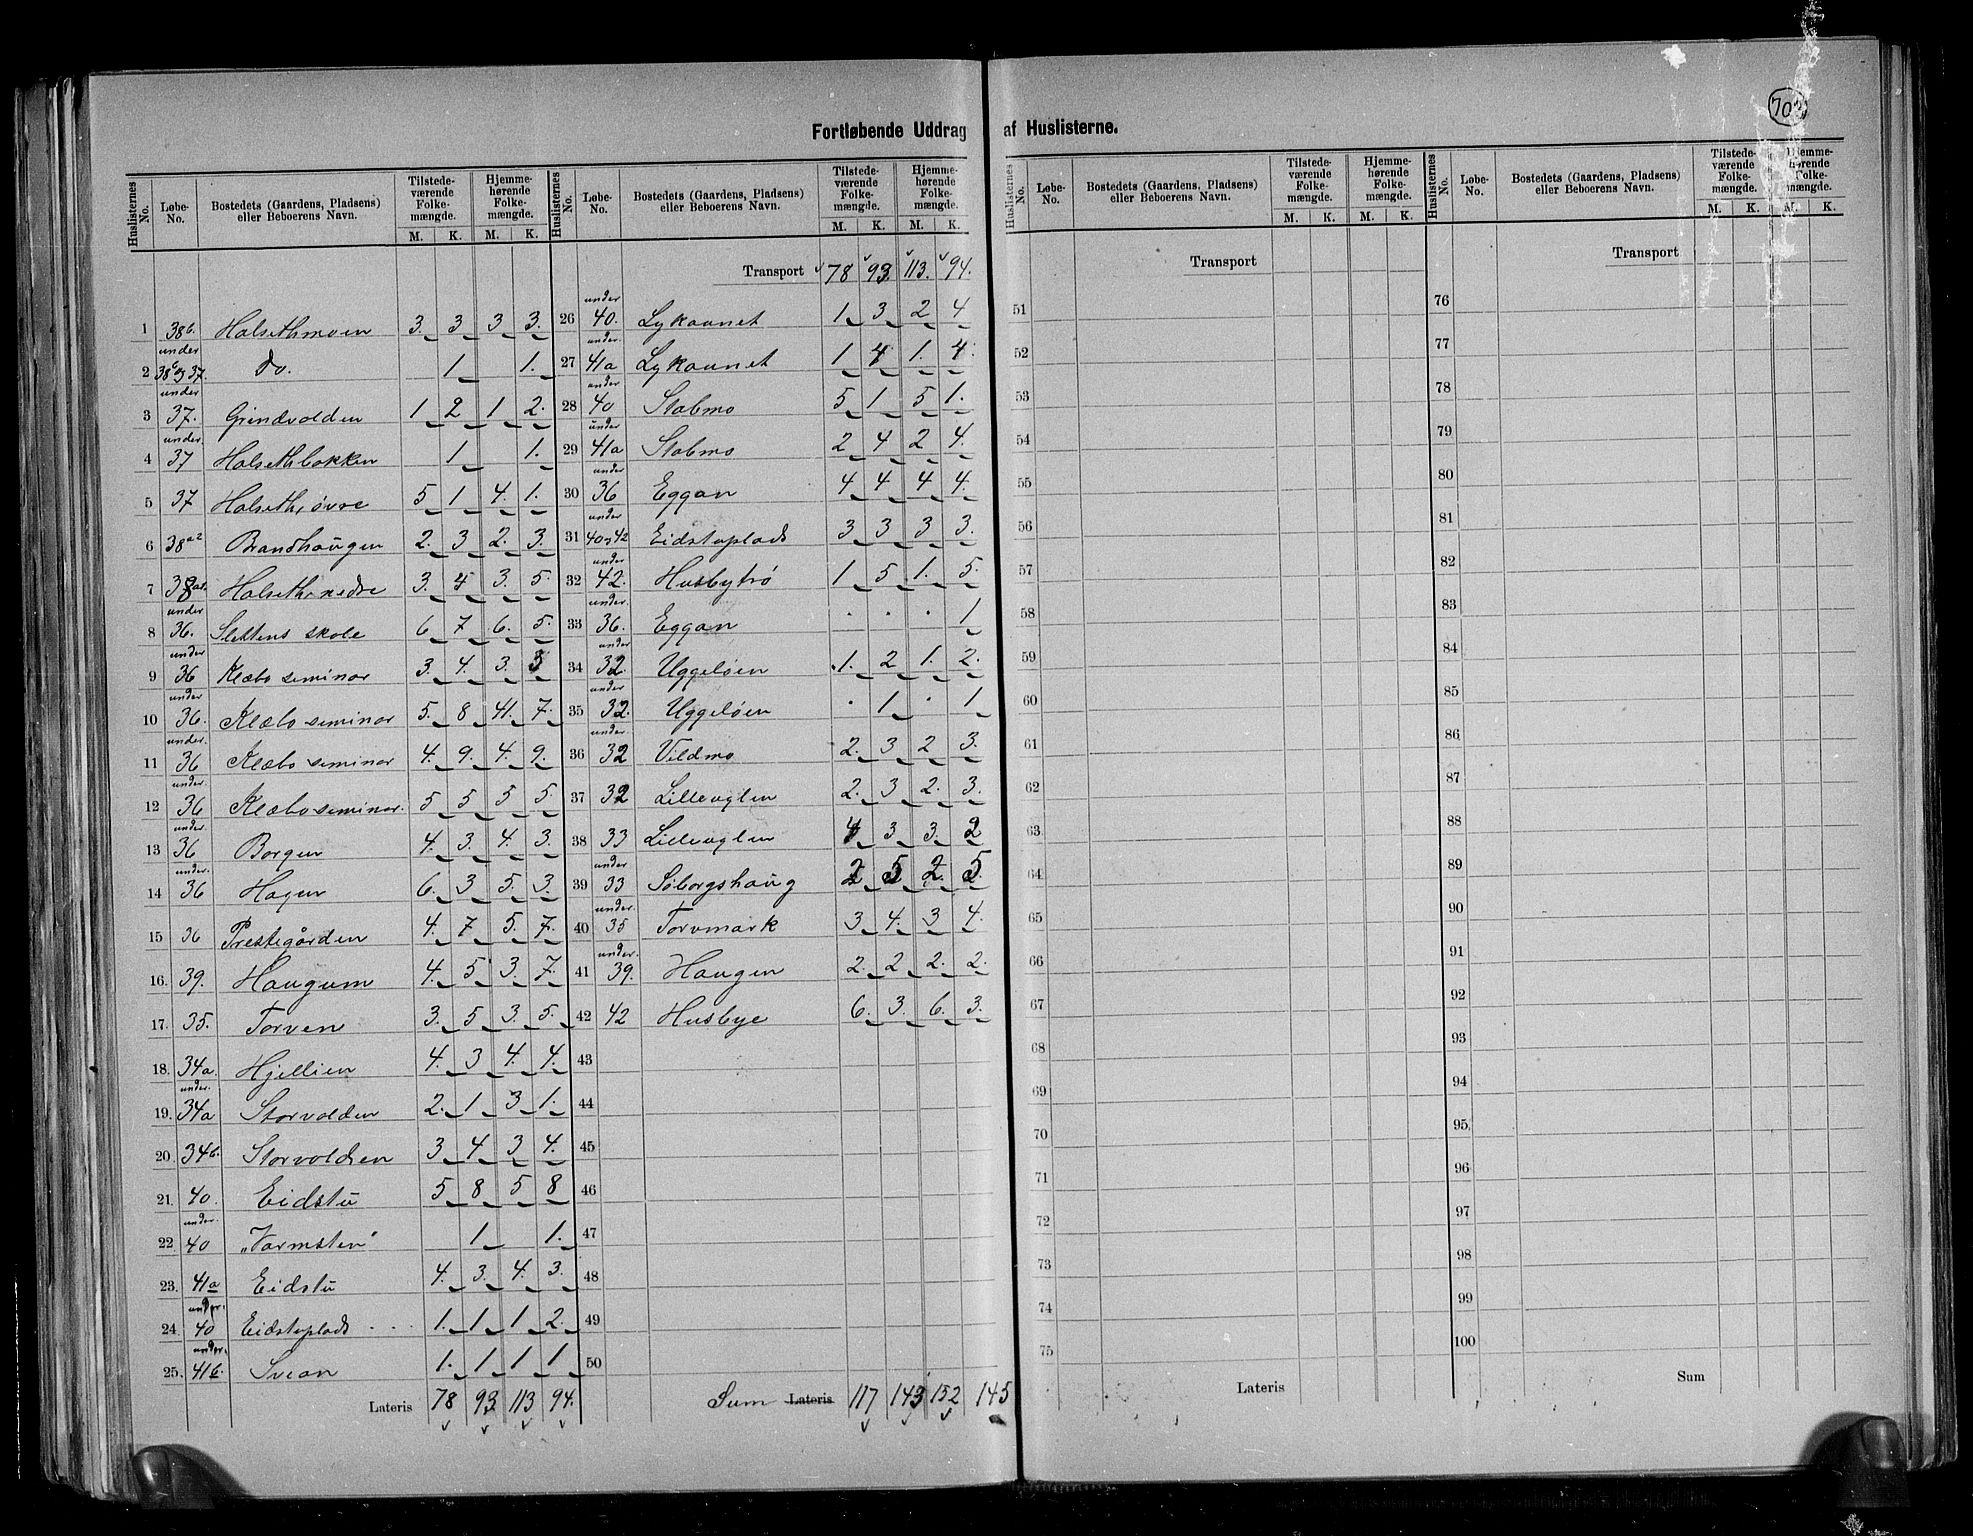 702
Fortløbende Uddrag af Huslisterne.
Huslisternes No. Løbe-No. Bostedets (Gaardens, Pladsens) eller Beboerens Navn. Tilstedeværende Folkemængde. M. K. Hjemmehørende Folkemængde. M. K.
1 38b. Halsethmoen 3. 3 3 3.
2 under 38c og 37. Do. 1 1.
3 under 37. Grindvolden 1 2 1 2.
4 under 37 Halsethbakken 1 1.
5 37 Halseth, øvre 5 1 4. 1.
6 38a2 Brandhaugen 2. 3 2. 3.
7 38a1. Halseth, nedre 3. 4 3. 5.
8 under 36. Slettens skole 6 7 6. 5.
9 under 36 Klæbo seminar 3. 4. 3. 3
10 under 36. Klæbo seminar 5. 8 41. 7.
11 under. 36 Klæbo seminar 4. 9. 4. 9.
12 under. 36 Klæbo seminar. 5 5 5 5.
13 under. 36 Borgen 4. 3. 4. 3.
14 under. 36 Hagen 6. 3 5. 3.
15 36 Prestegården 4. 7 5. 7.
16. 39. Haugum 4. 5 3. 7.
17. 35. Torven 3. 5 3. 5.
18. 34a. Hjellien 4. 3 4. 4.
19. under. 34a Storvolden 2. 1 3 1.
20. 34b. Storvolden 3 4. 3 4.
21. 40. Eidstu 5 8 5 8
22 under. 40 „Varmsten" 1 1.
23. 41a Eidstu 4. 3. 4. 3.
24. under. 40 Eidstuplads 1. 1 1 2.
25. under. 41b. Svean 1. 1 1 1
Lateris 78 93 113 94.
Huslisternes No. Løbe-No. Bostedets (Gaardens, Pladsens) eller Beboerens Navn. Tilstedeværende Folkemængde. M. K. Hjemmehørende Folkemængde. M. K.
Transport 78 93. 113. 94.
26 under 40. Lykaunet 1 3 2 4
27 under. 41a Lykaunet 1 4 1. 4.
28 under 40 Stabmo 5 1 5 1.
29 under 41a Stabmo 2 4 2 4.
30 under 36 Eggan 4 4 4 4.
31 under 40 og 42 Eidstuplads 3 3 3 3.
32 under 42. Husbytrø 1 5 1. 5.
33 under. 36. Eggan . . . 1
34 under 32. Uggeløen 1. 2 1. 2.
35 under 32. Uggeløen . 1 . 1
36 under. 32 Vildmo 2. 3 2 3.
37 32 Lilleuglen 2. 3 2. 3.
38 33 Lilleuglen 4 3 3. 2
39 under 33 Søborgshaug 2 5 2. 5.
40 under. 35 Torvmark 3 4. 3 4.
41 under. 39. Haugen 2. 2 2. 2.
42 42 Husbye 6. 3. 6. 3.
43
44
45
46
47
48
49
50
Sum Lateris 117 143 152 145
Huslisternes No. Løbe-No. Bostedets (Gaardens, Pladsens) eller Beboerens Navn. Tilstedeværende Folkemængde. M. K. Hjemmehørende Folkemængde. M. K.
Transport
51
52
53
54
55
56
57
58
59
60
61
62
63
64
65
66
67
68
69
70
71
72
73
74
75
Lateris
Huslisternes No. Løbe-No. Bostedets (Gaardens, Pladsens) eller Beboerens Navn. Tilstedeværende Folkemængde. M. K. Hjemmehørende Folkemængde. M. K.
Transport
76
77
78
79
80
81
82
83
84
85
86
87
88
89
90
91
92
93
94
95
96
97
98
99
100
Sum